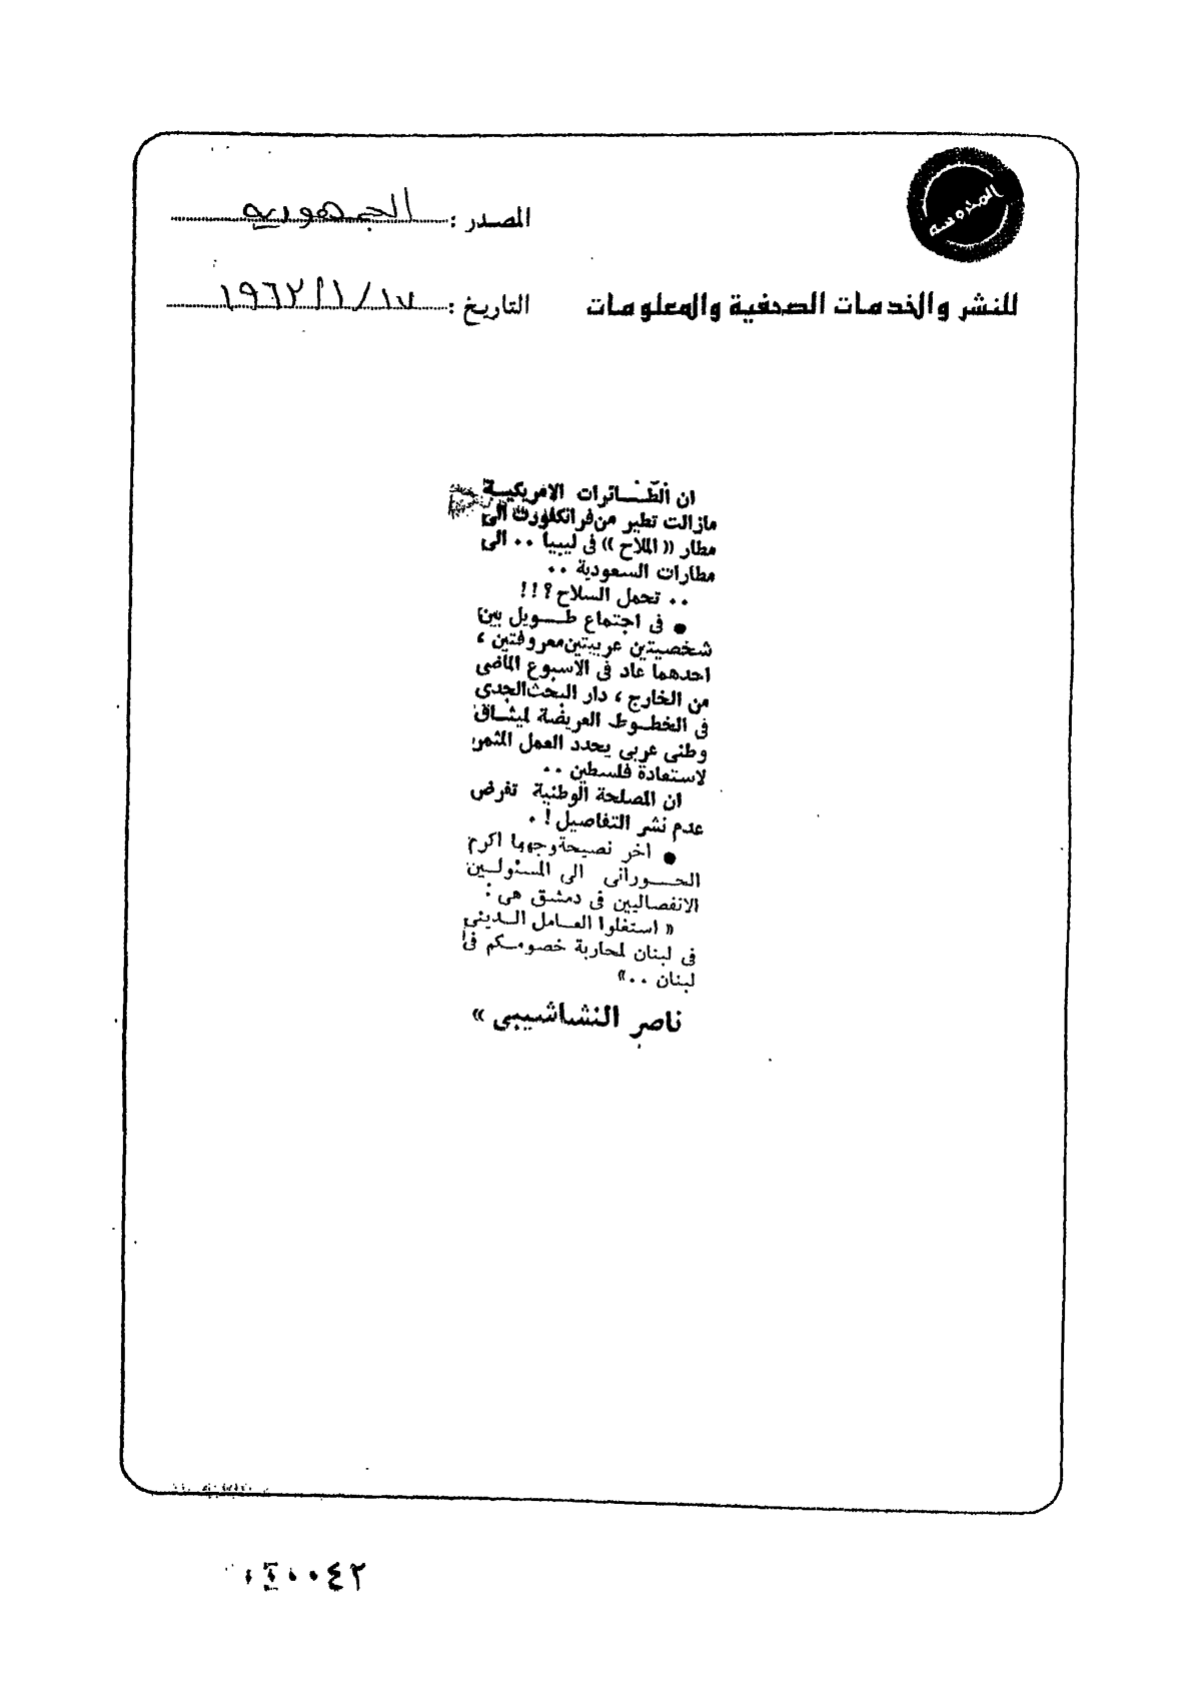 المحروسة
المصدر : الجمهورية
للنشر والخدمات الصحفية والمعلومات
التاريخ : ١٧ / ١ / ١٩٦٢
ان الطـائرات الامريكيـة
مازالت تطير من فرانكفورت الى
مطار « الملاح » فى ليبيا .. الى
مطارات السعودية ..
.. تحمل السلاح ؟!!
● فى اجتماع طـويل بين
شخصيتين عربيتين معروفتين ،
احدهما عاد فى الاسبوع الماضى
من الخارج ، دار البحث الجدى
فى الخطـوط العريضة لميثـاق
وطنى عربى يحدد العمل المثمر
لاستعادة فلسطين ..
ان المصلحة الوطنية تفرض
عدم نشر التفاصيل ! .
● اخر نصيحة وجهها اكرم
الحـورانى الى المسئولـين
الانفصاليين فى دمشق هى :
« استغلوا العـامل الـدينى
فى لبنان لمحاربة خصومـكم فى
لبنان .. »
ناصر النشاشيبى »
٠٠٤٢